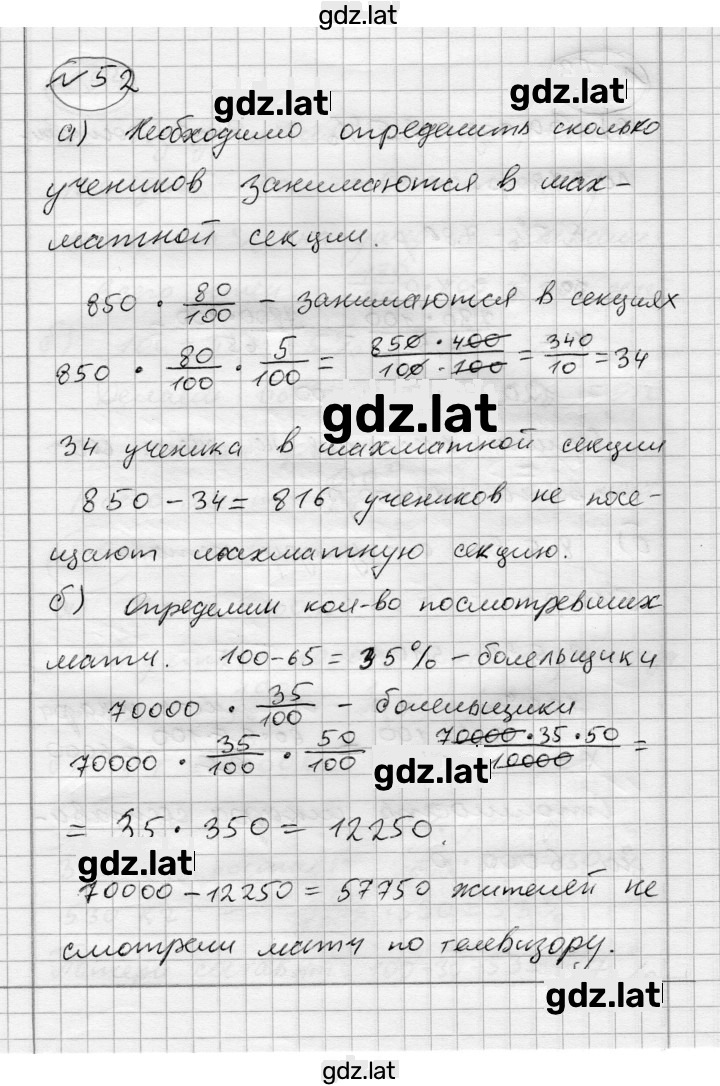 gdz.lat
№ 52
gdz.lat
gdz.lat
а) Необходимо определить сколько
учеников занимаются в шах-
матной секции.
850 · 80/100 - занимаются в секциях
850 · 80/100 · 5/100 = 850 · 400/100 · 100 = 340/10 = 34
gdz.lat
34 ученика в шахматной секции
850 - 34 = 816 учеников не посе-
щают шахматную секцию.
б) Определим кол-во посмотревших
матч. 100-65 = 35% - болельщики
70000 · 35/100 - болельщики
70000 · 35/100 · 50/100 gdz.lat 70000 · 35 · 50/10000 =
= 35 · 350 = 12250.
gdz.lat
70000 - 12250 = 57750 жителей не
смотрели матч по телевизору.
gdz.lat
gdz.lat